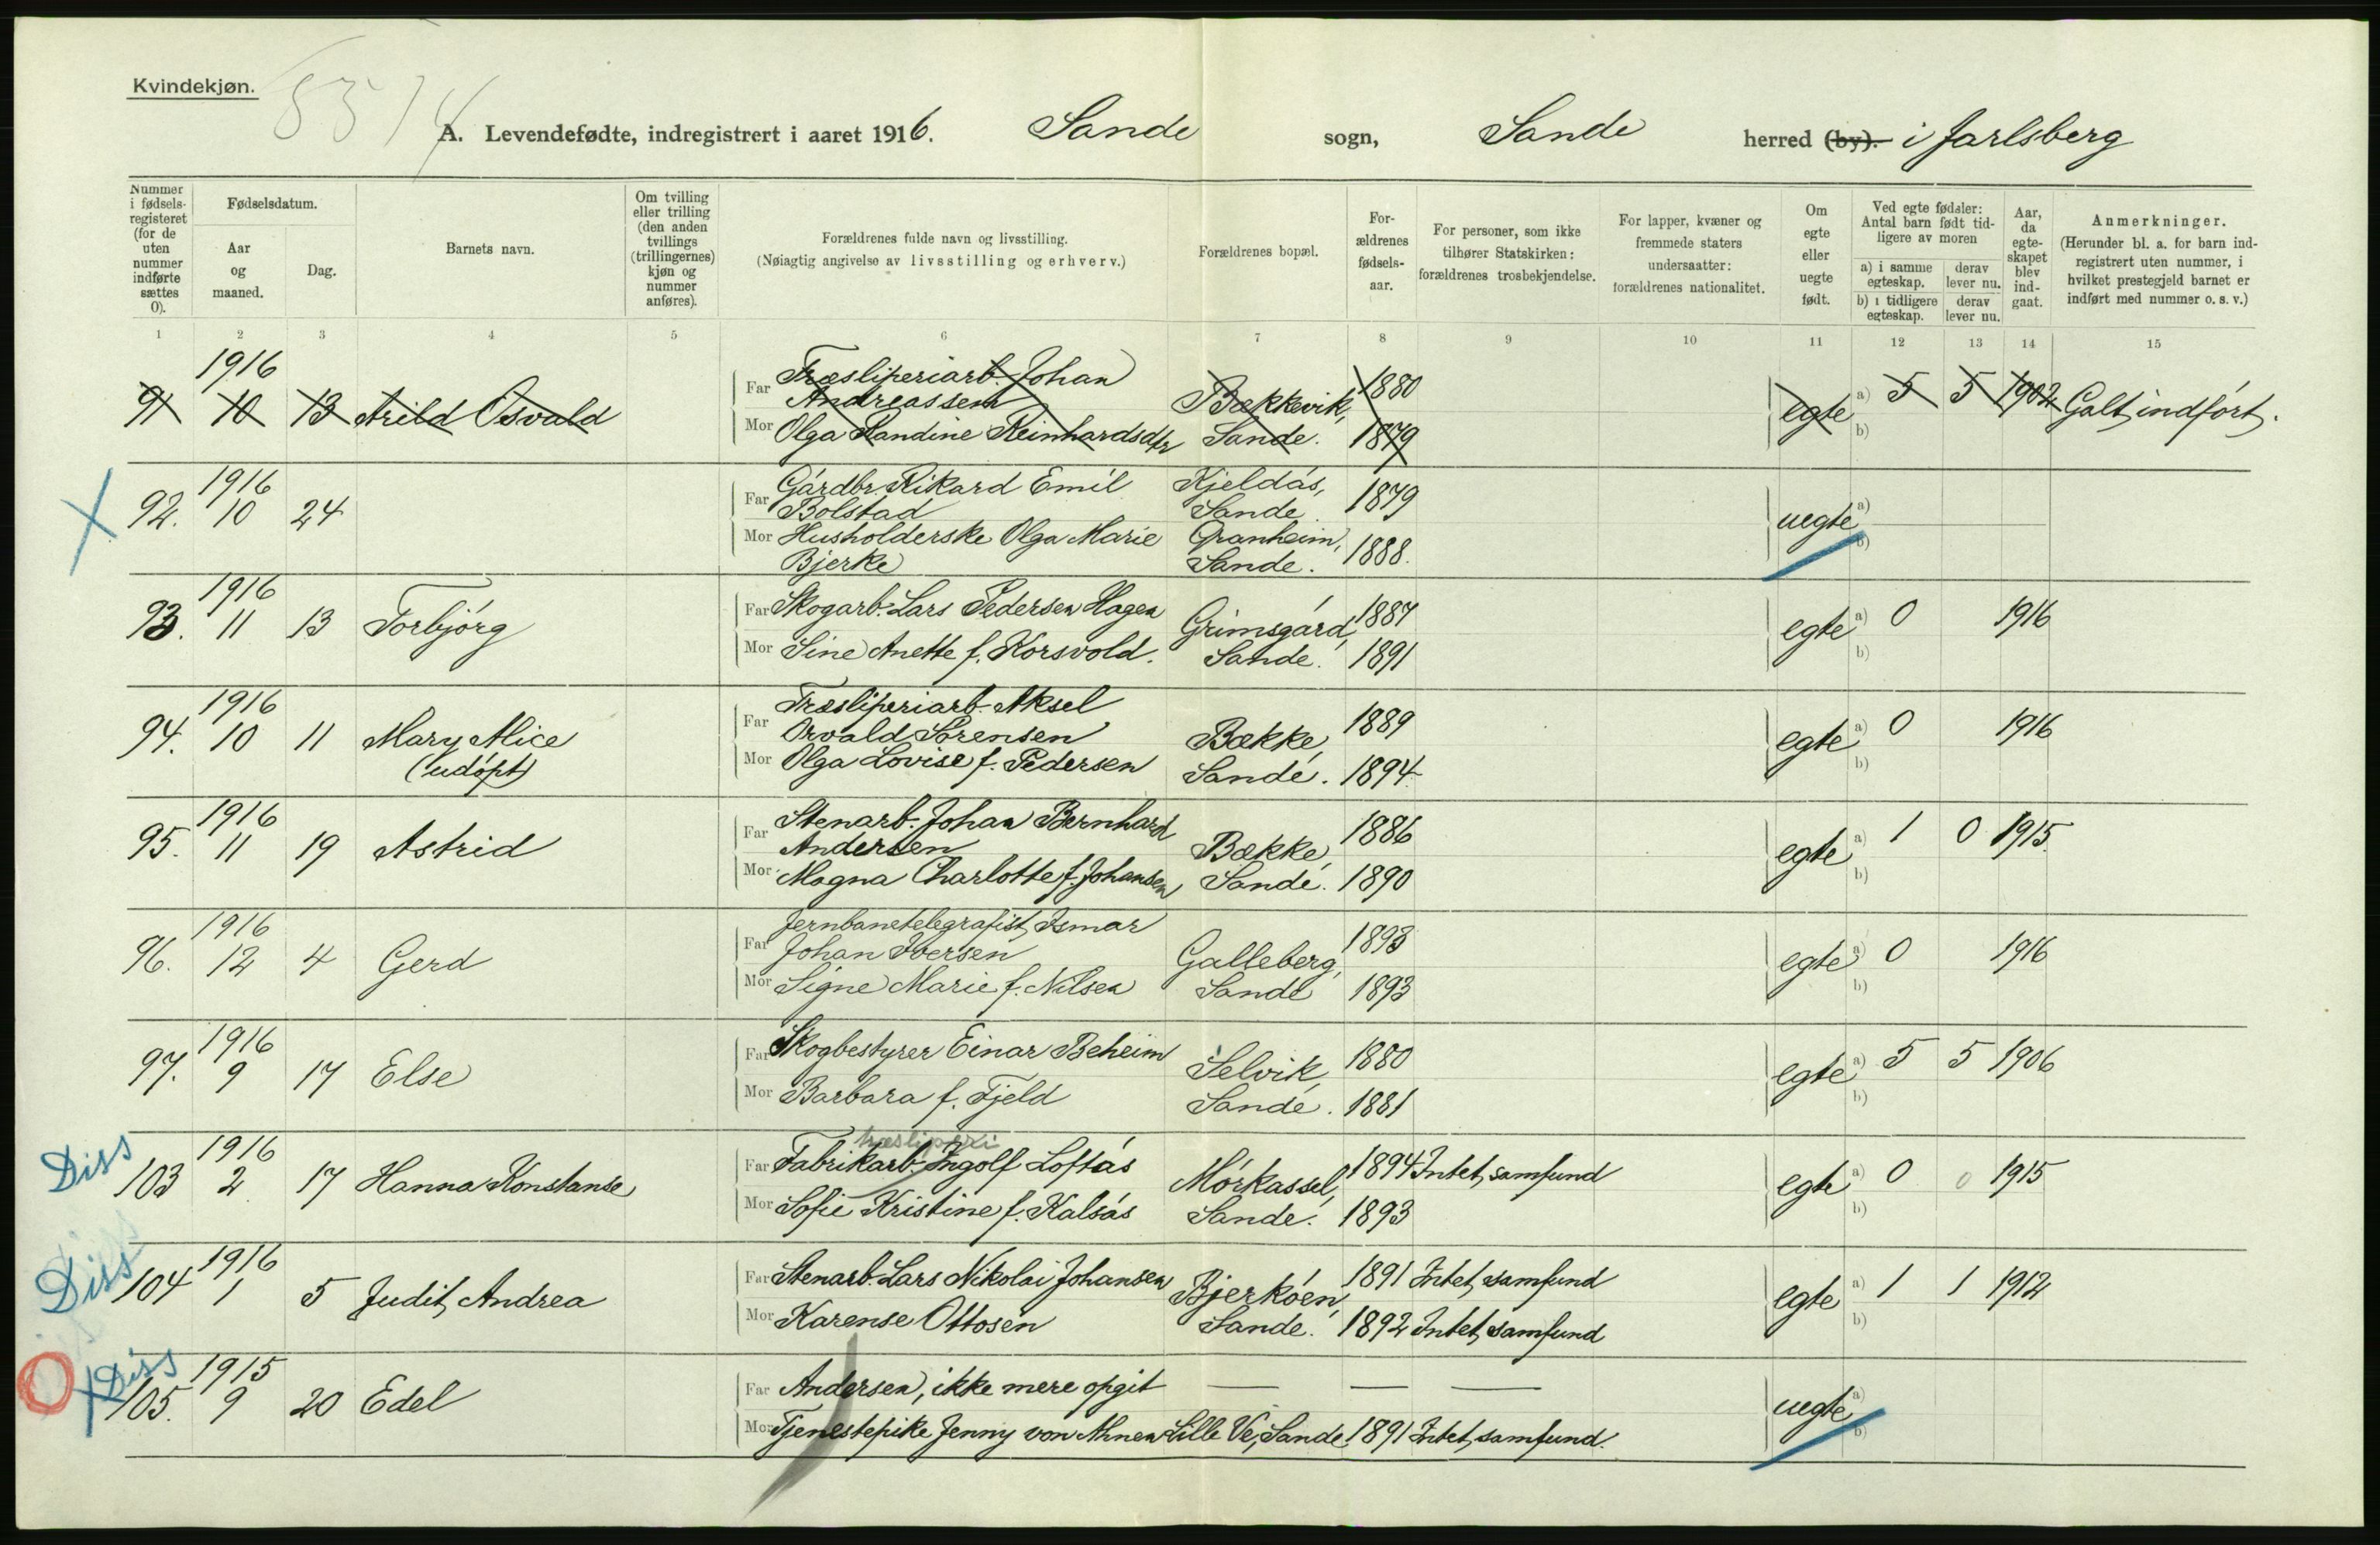 Kvindekjøn.
A. Levendefødte, indregistrert i aaret 1916. Sande sogn, Sande herred (by). i Jarlsberg
Nummer i fødsels-registeret (for de uten nummer indførte sættes 0).
Fødselsdatum.
Aar og maaned.
Dag.
Barnets navn.
Om tvilling eller trilling (den anden tvillings (trillingernes) kjøn og nummer anføres).
Forældrenes fulde navn og livsstilling.
(Nøiagtig angivelse av livsstilling og erhverv.)
Forældrenes bopæl.
For-ældrenes fødsels-aar.
For personer, som ikke tilhører Statskirken: forældrenes trosbekjendelse.
For lapper, kvæner og fremmede staters undersaatter: forældrenes nationalitet.
Om egte eller uegte født.
Ved egte fødsler: Antal barn født tid-ligere av moren
a) i samme egteskap. derav lever nu.
b) i tidligere egteskap. derav lever nu.
Aar, da egte-skapet blev ind-gaat.
Anmerkninger.
(Herunder bl. a. for barn ind-registrert uten nummer, i hvilket prestegjeld barnet er indført med nummer o. s. v.)
1 2 3 4 5 6 7 8 9 10 11 12 13 14 15
1916
91 10 13 Arild Osvald
Far Træsliperiarb. Johan Andreassen
Mor Olga Randine Reinhardsdtr
Bækkevik, Sande.
1880
1879
egte a) b) 5 5 1902 Galt indført.
1916
92. 10 24
Far Gårdbr. Rikard Emil Bolstad
Kjeldås, Sande.
1879
Mor Husholderske Olga Marie Bjerke
Granheim, Sande.
1888.
uegte a) b)
1916
93. 11 13 Torbjörg
Far Skogarb. Lars Pedersen Hagen
Mor Sine Anette f. Korsvold.
Grimsgård, Sande.
1887
1891
egte a) b) 0 1916
1916
94. 10 11 Mary Alice
(udöpt)
Far Træsliperiarb. Aksel Orvald Sörensen
Mor Olga Lovise f. Pedersen
Bække, Sande.
1889
1894
egte a) b) 0 1916
1916
95. 11 19 Astrid
Far Stenarb. Johan Bernhard Andersen
Mor Magna Charlotte f. Johansen
Bække, Sande.
1886
1890
egte a) b) 1 0 1915.
1916
96. 12 4 Gerd
Far Jernbanetelegrafist Ismar Johan Iversen
Mor Signe Marie f. Nilsen
Galleberg, Sande
1893
1893
egte a) b) 0 1916
1916
97. 9 17 Else
Far Skogbestyrer Einar Beheim
Mor Barbara f. Fjeld
Selvik, Sande.
1880
1881
egte a) b) 5 5 1906
Diss
1916
103 2 17 Hanna Konstanse
træsliperi
Far Fabrikarb. Ingolf Loftås
Mor Sofie Kristine f. Kalsås
Mörkassel, Sande.
1894 Intet samfund
1893
egte a) b) 0 0 1915
Diss
1916
104 1 5 Judit Andrea
Far Stenarb. Lars Nikolai Johansen
Mor Karense Ottosen
Bjerköen, Sande.
1891 Intet samfund
1892 Intet samfund
egte a) b) 1 1 1912
Diss
1915
105. 9 20 Edel
Far Andersen, ikke mere opgit — — —
Mor Tjenestepike Jenny von Ahnen Lille Ve, Sande 1891 Intet samfund.
uegte a) b)